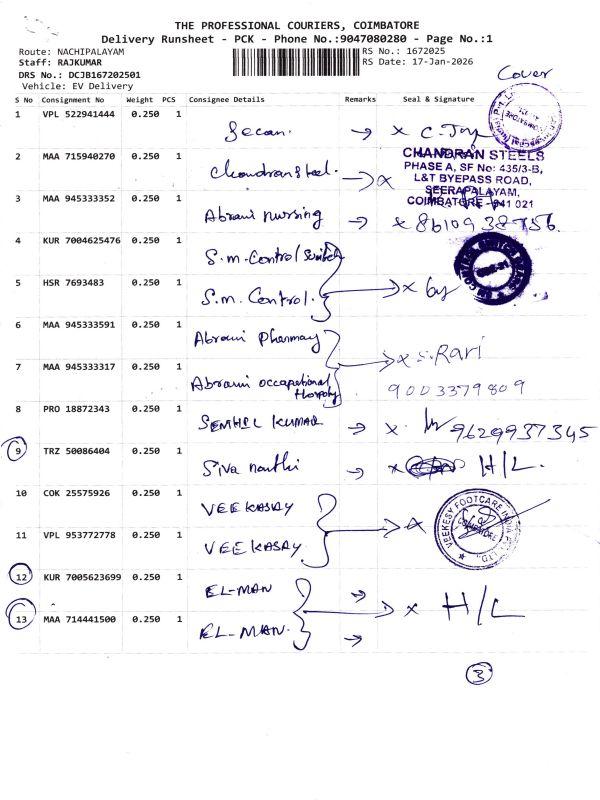 THE PROFESSIONAL COURIERS, COIMBATORE
Delivery Runsheet - PCK - Phone No.:9047080280 - Page No.:1
Route: NACHIPALAYAM RS No.: 1672025
Staff: RAJKUMAR RS Date: 17-Jan-2026
DRS No.: DCJB167202501
Vehicle: EV Delivery
Cover
S No Consignment No Weight PCS Consignee Details Remarks Seal & Signature
1 VPL 522941444 0.250 1 Secan. → x C. Joy
2 MAA 715940270 0.250 1 Chandran Steel. → x
CHANDRAN STEELS
PHASE A, SF No: 435/3-B,
L&T BYEPASS ROAD,
SEERAPALAYAM,
COIMBATORE - 641 021
3 MAA 945333352 0.250 1 Abrami nursing → x 8610938756.
4 KUR 7004625476 0.250 1 S.m. Control Switch
5 HSR 7693483 0.250 1 S.m. Control. → x by
6 MAA 945333591 0.250 1 Abrami Pharmacy
→ x S. Rari
7 MAA 945333317 0.250 1 Abrami occupational
9003379809
8 PRO 18872343 0.250 1 SENTHIL KUMAR → x. 9629937345
9 TRZ 50086404 0.250 1 Siva nanthi → x H/L.
10 COK 25575926 0.250 1 VEEKASAY
→ x
VEEKESY FOOTCARE INDIA PVT. LTD.
COIMBATORE
11 VPL 953772778 0.250 1 VEEKASAY
12 KUR 7005623699 0.250 1 EL-MAN →
→ x H/L
13 MAA 714441500 0.250 1 EL-MAN. →
3